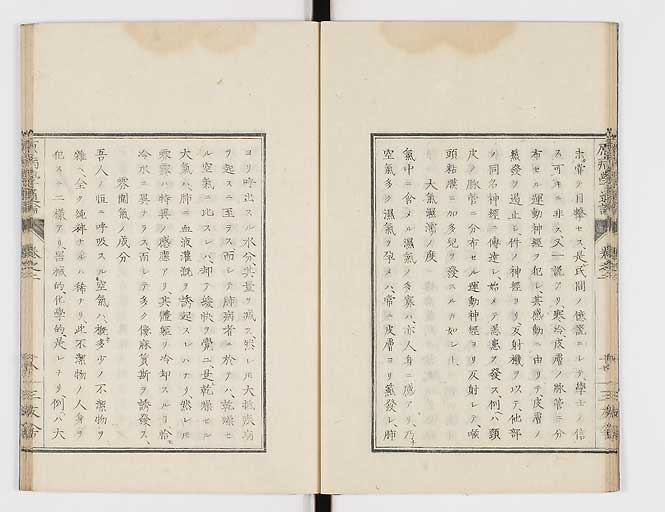 未嘗テ目撃セス、是氏間ノ憶説ニシテ、學士ノ信
ス可キニ非ス又一説アリ、寒冷皮膚ノ脈管ニ分
布セル運動神經ヲ犯シ、其感動ニ由リテ皮膚ノ
蒸發ヲ遏止シ、件ノ神經ヨリ、反射機ヲ以テ、他部
ノ同名神經ニ傳達シ、始メテ患害ヲ發ス、例ハ頸
皮ノ脈管ニ分布セル運動神經ヨリ反射シテ、喉
頭粘膜ニ加多兒ヲ發スルカ如シ、
大氣濕濡ノ度
氣中ニ含メル濕氣ノ多寡ハ、亦人身ニ感アリ、乃
空氣多ク濕氣ヲ孕メハ、常ニ皮膚ヨリ蒸發シ、肺
ヨリ呼出スル水分、其量ヲ減ス、然レ𪜈大抵疾病
ヲ起スニ至ラス、而シテ肺病者ニ於テハ乾燥セ
ル空氣ニ比スレハ、却テ爽快ヲ覺ユ、是乾燥セル
大氣ハ、肺ニ血液灌漑ヲ誘起スレハナリ、然レ𪜈
雰霧ハ特異ノ感應アリ、其體經リ冷却スルヿ恰
冷水ニ異ナラス、而シテ多ク僂麻質斯ヲ誘發ス、
雰圍氣ノ成分
吾人ノ恒ニ呼吸スル空氣ハ、概多少ノ不潔物ヲ
雜ヘ、全ク純粹ナルハ稀ナリ、此不潔物ノ人身ヲ
犯ス二様アリ、器械的、化學的、是レナリ、例ハ大
原病學通論
卷之二
三友舎